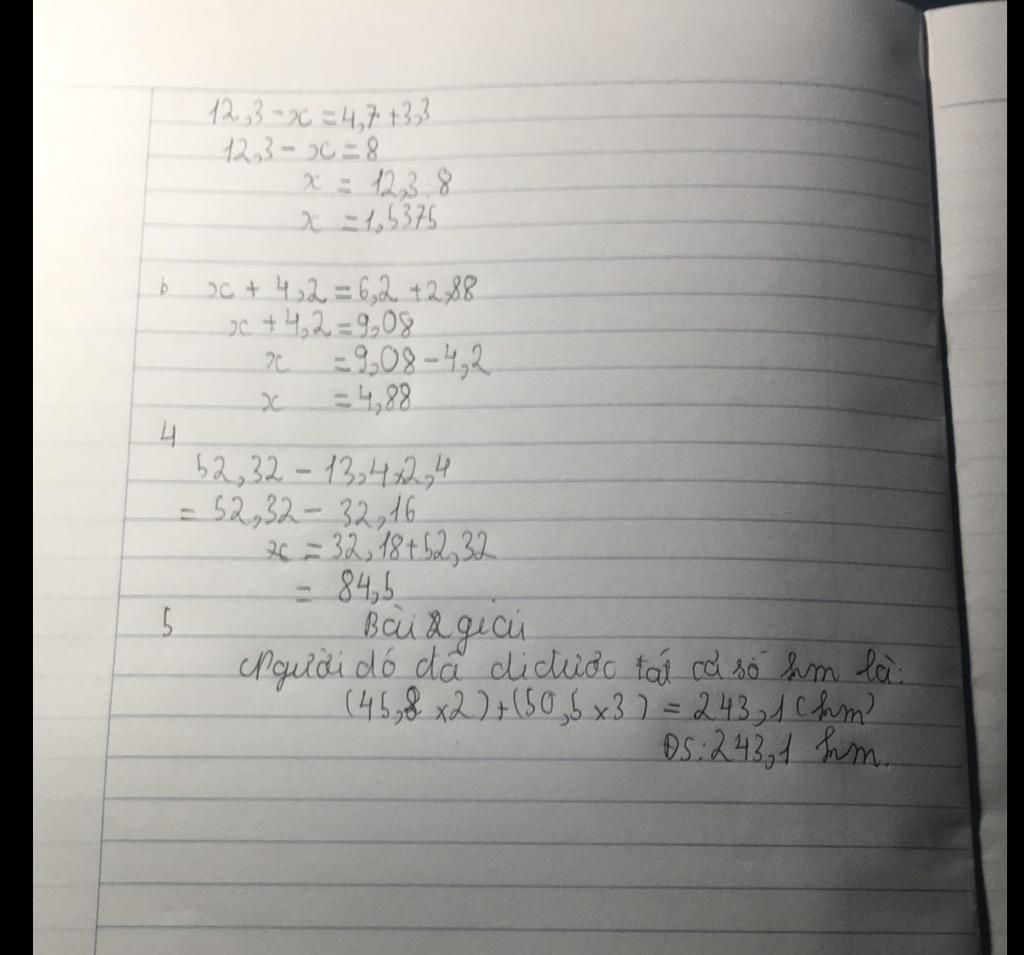 12,3 - x = 4,7 + 3,3
12,3 - x = 8
x = 12,3 : 8
x = 1,5375
b x + 4,2 = 6,2 + 2,88
x + 4,2 = 9,08
x = 9,08 - 4,2
x = 4,88
4
52,32 - 13,4 x 2,4
= 52,32 - 32,16
x = 32,18 + 52,32
= 84,5
5 Bài giải
Người dó đã di được tất cả số km là:
(45,8 x 2) + (50,5 x 3) = 243,1 (km)
ĐS: 243,1 km.